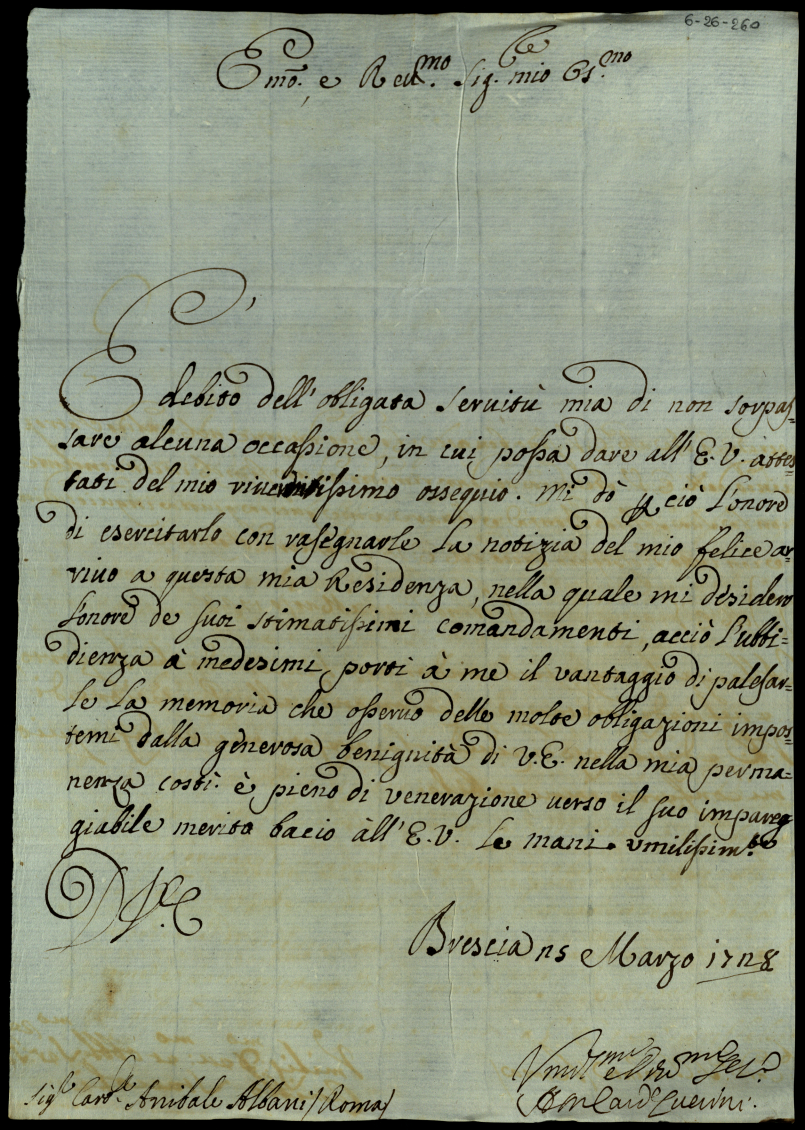 6-26-260
Emo. e Reu.mo Sig.re mio Oss.mo
E' debito dell'obligata seruitù mia di non sorpas=
sare alcuna occassione, in cui possa dare all'E.V. attes=
tati del mio riueritissimo ossequio. Mi dò per ciò l'onore
di esercitarlo con rasegnarle la notizia del mio felice ar=
riuo a questa mia Residenza, nella quale mi desidero
l'onore de suoi stimatissimi comandamenti, acciò l'ubbi=
dienza à medesimi porti à me il vantaggio di palesar=
le la memoria che osseruo delle molte obligazioni impos=
temi dalla generosa benignità di V.E. nella mia perma=
nenza costì. è pieno di venerazione uerso il suo impareg
giabile merito bacio all'E.V. le mani umilissim.te
D V.E.
Brescia 25 Marzo 1728
Sig.r Card.le Anibale Albani / Roma /
A M Card. Querini.